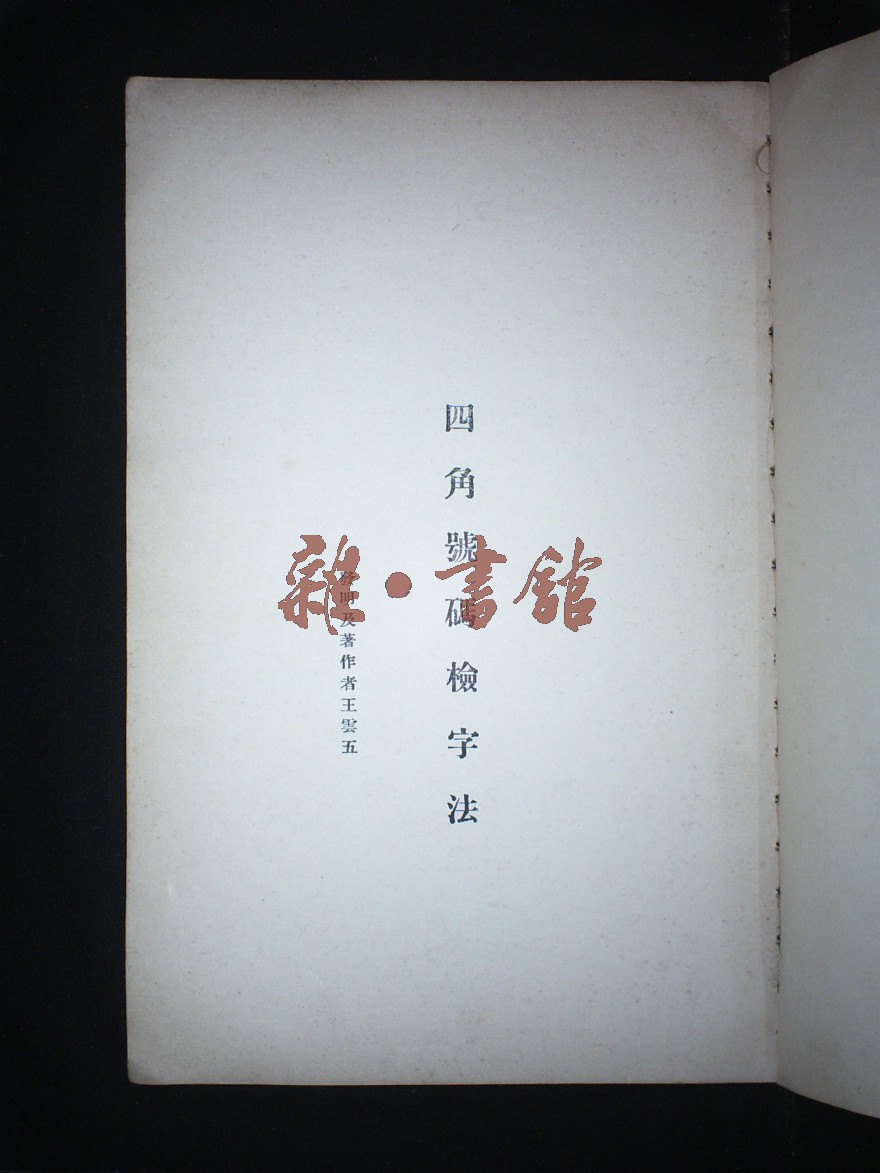 四角號碼檢字法
發明及著作者王雲五
雜·書館